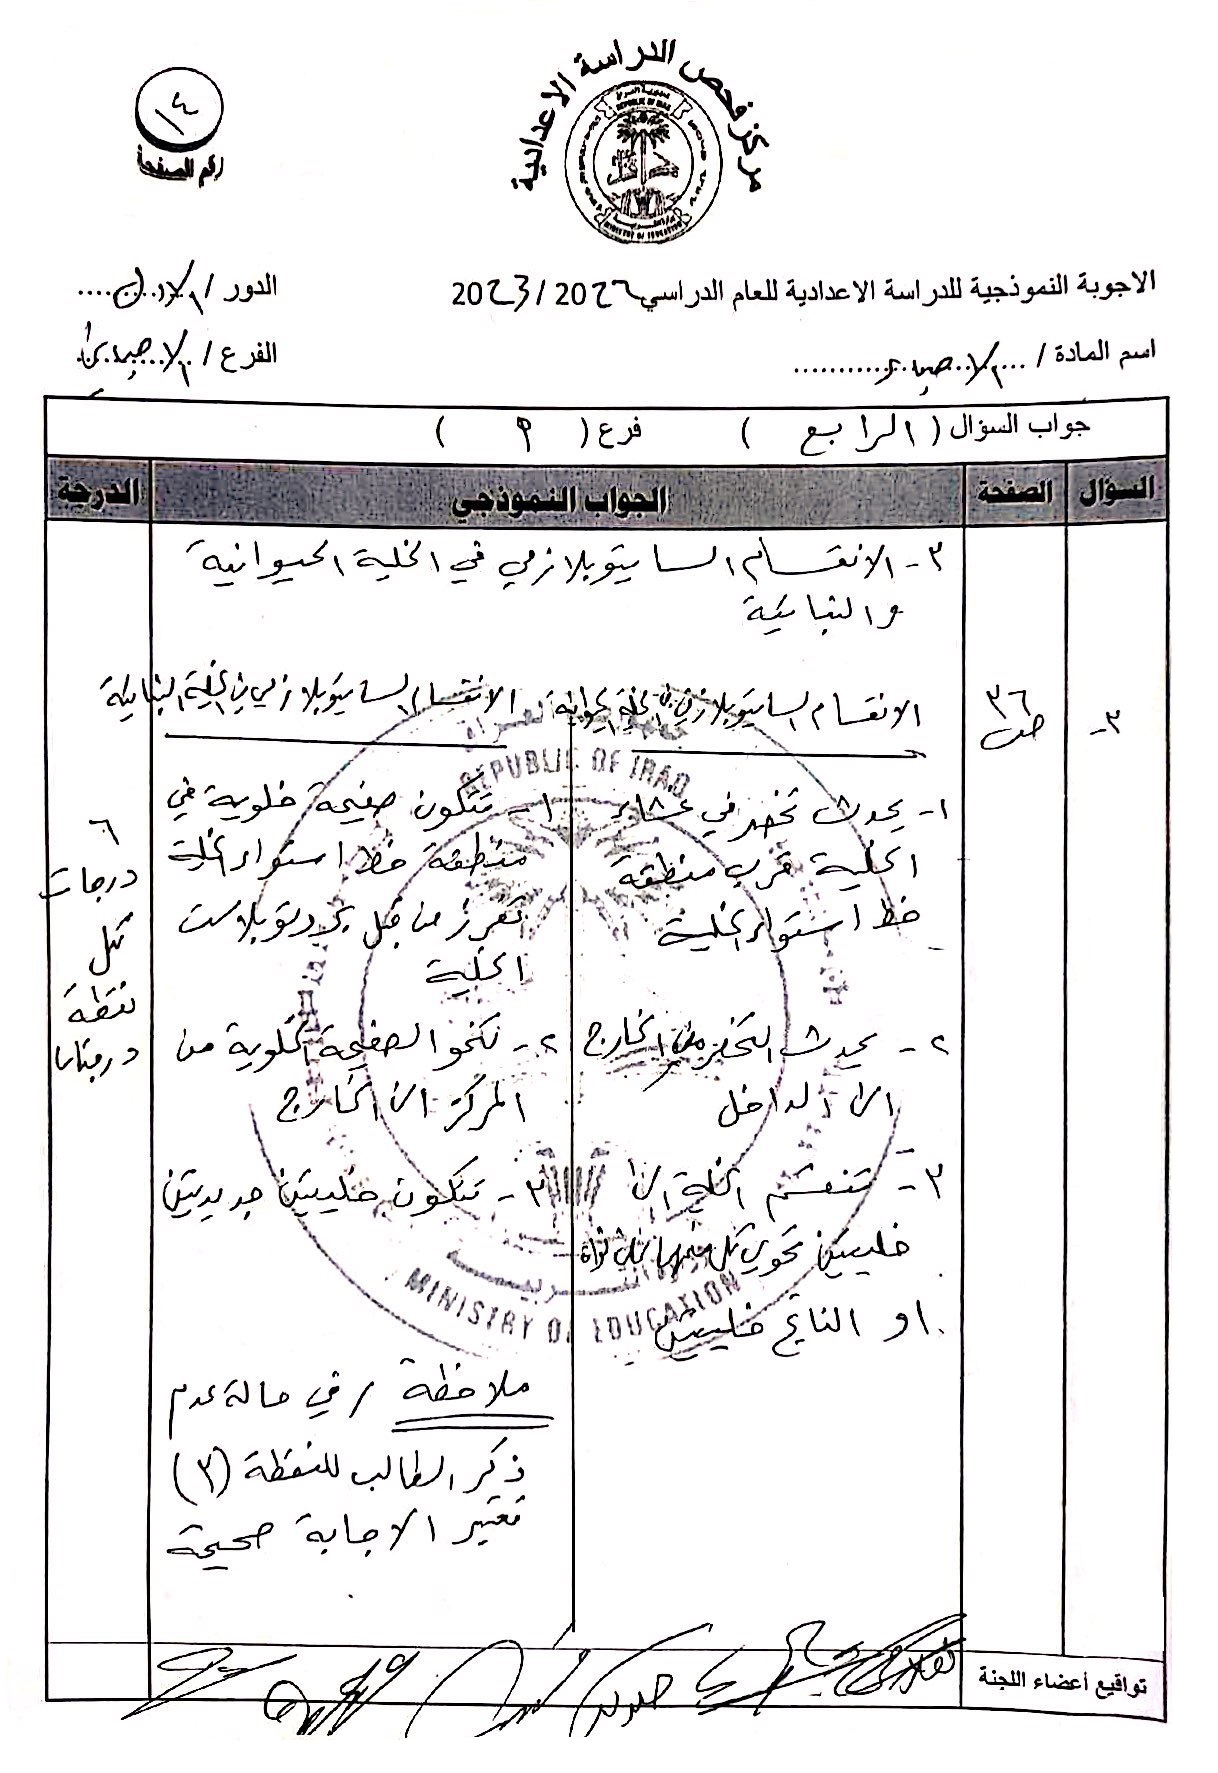 مركز فحص الدراسة الاعدادية
١٤
رقم الصفحة
الاجوبة النموذجية للدراسة الاعدادية للعام الدراسي 2022 / 2023
الدور / الاول
اسم المادة / الاحياء
الفرع / الاحيائي
جواب السؤال ( الرابع ) فرع ( ٩ )
السؤال الصفحة الجواب النموذجي الدرجة
٣- الانقسام السايتوبلازمي في الخلية الحيوانية
والنباتية
٣-
ص ٣٦
الانقسام السايتوبلازمي في الخلية الحيوانية
١- يحدث تخصر في غشاء
الخلية قرب منطقة
خط استواء الخلية
٢- يحدث التخصر من الخارج
الى الداخل
٣- تنقسم الخلية الى
خليتين تحوي كل منهما على نواة
او الناتج خليتين
الانقسام السايتوبلازمي في الخلية النباتية
١- تتكون صفيحة خلوية في
منطقة خط استواء الخلية
تفرز من قبل بروتوبلاست
الخلية
٢- تنمو الصفيحة الخلوية من
المركز الى الخارج
٣- تتكون خليتين جديدتين
ملاحظة / في حالة عدم
ذكر الطالب للنقطة (٣)
تعتبر الاجابة صحيحة
٦
درجات
كل
نقطة
درجتان
REPUBLIC OF IRAQ
MINISTRY OF EDUCATION
تواقيع أعضاء اللجنة